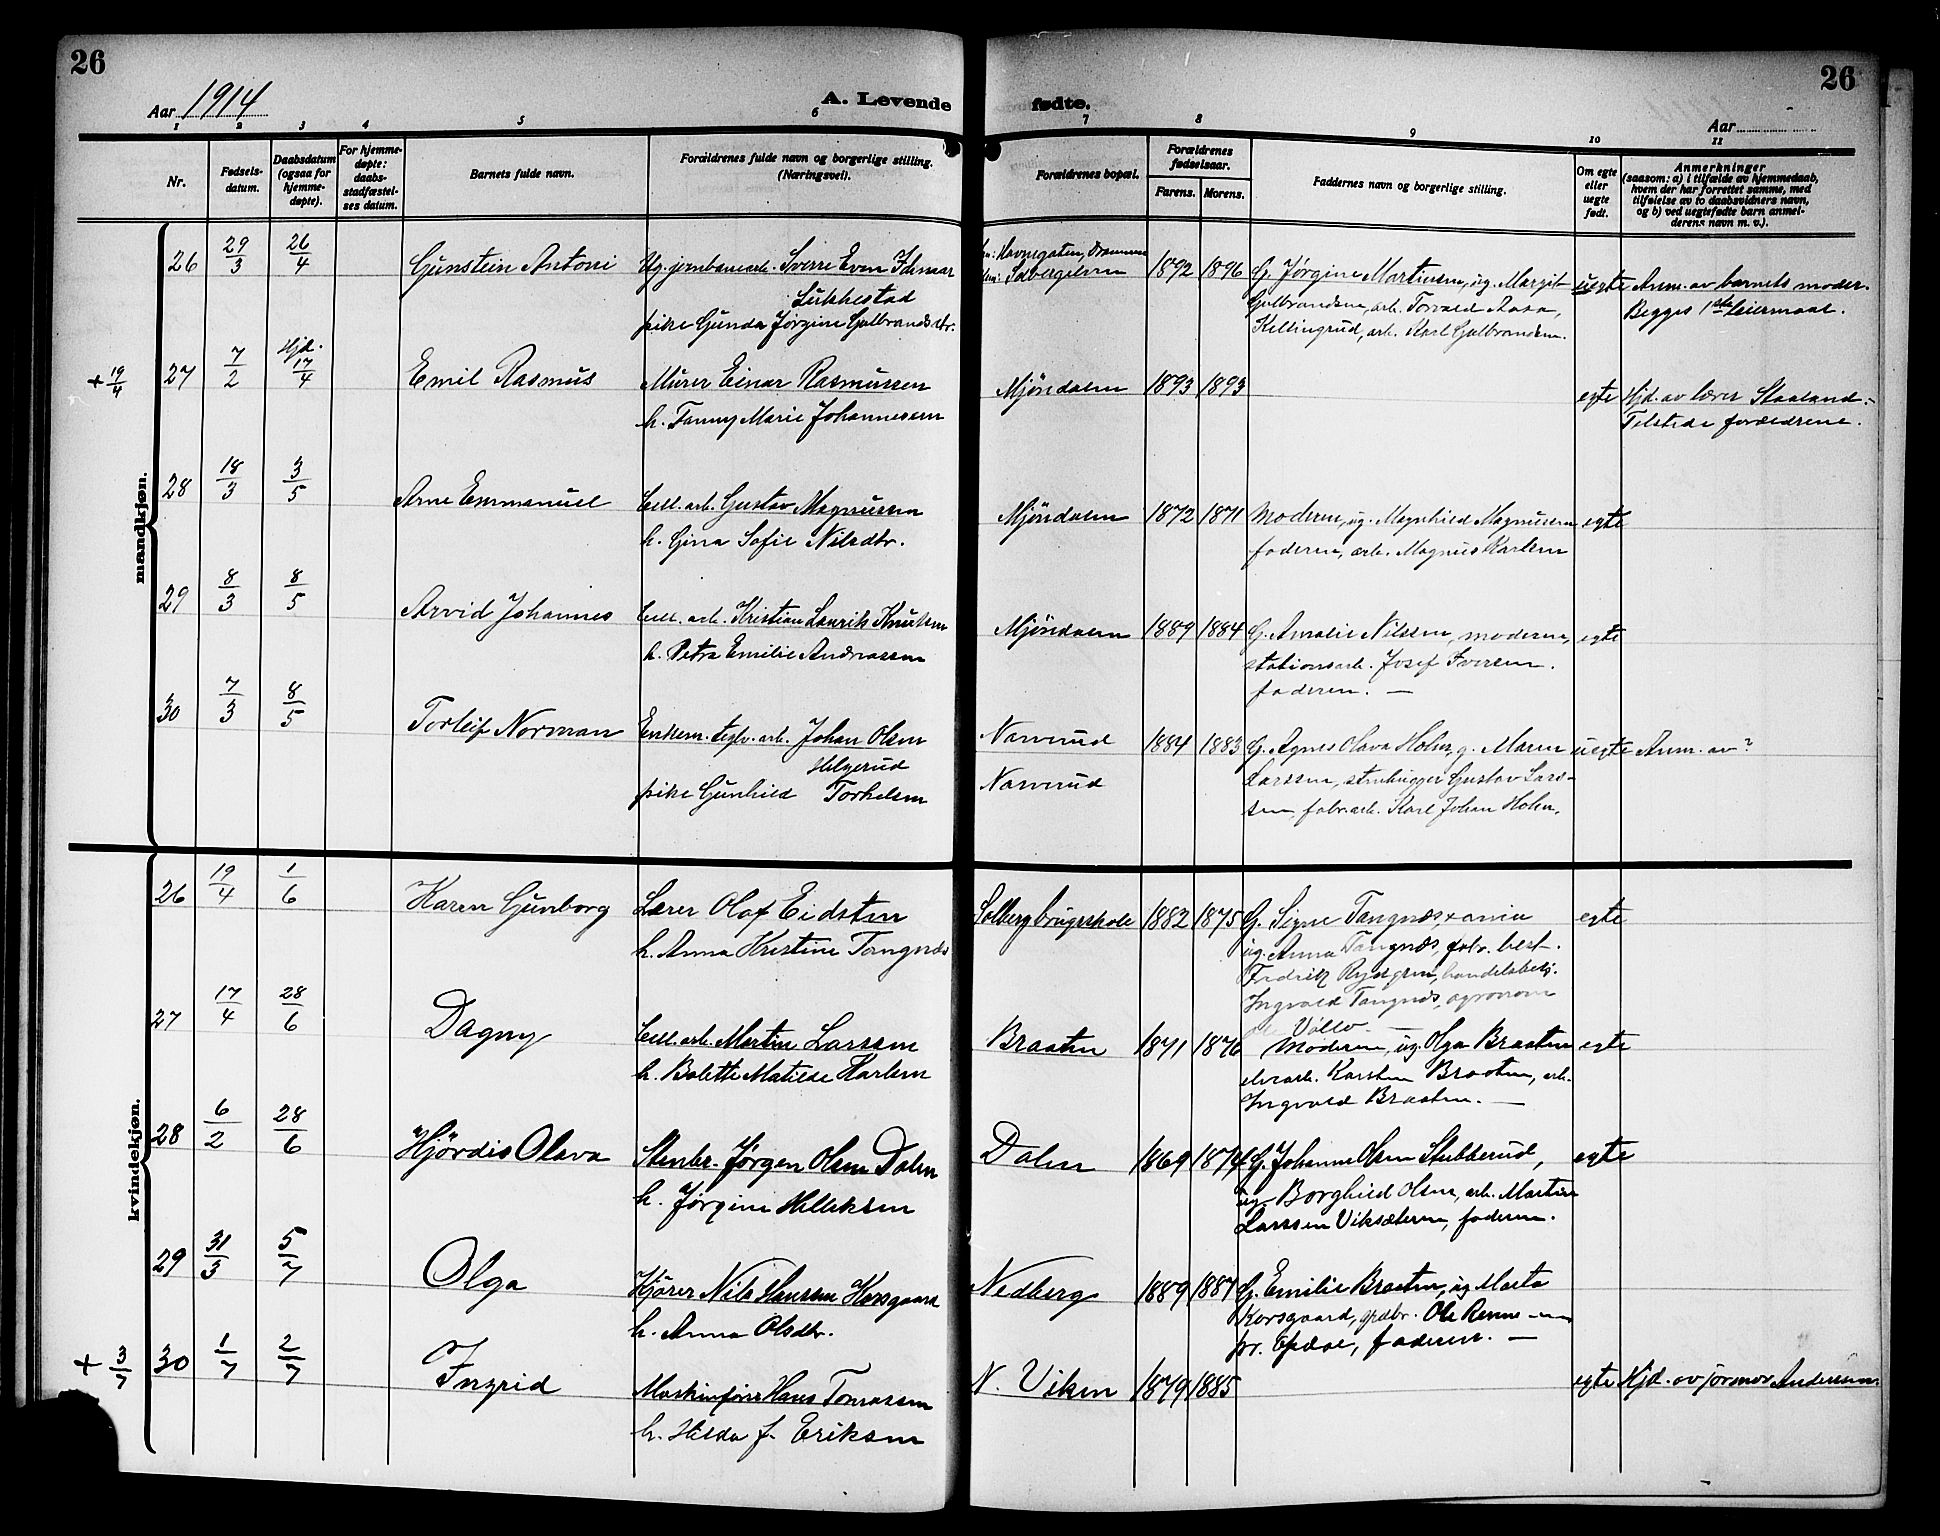 26
26
Aar 1914
A. Levende fødte.
Aar
1 2 3 4 5 6 7 8 9 10 11
Nr.
Fødsels-
datum.
Daabsdatum
(ogsaa for
hjemme-
døpte).
For hjemme-
døpte:
daabs-
stadfæstel-
ses datum.
Barnets fulde navn.
Forældrenes fulde navn og borgerlige stilling.
(Næringsvei).
Forældrenes bopæl.
Forældrenes
fødselsaar.
Farens. Morens.
Faddernes navn og borgerlige stilling.
Om egte
eller
uegte
født.
Anmerkninger
(saasom: a) i tilfælde av hjemmedaab,
hvem der har forrettet samme, med
tilføielse av to daabsvidners navn,
og b) ved uegtefødte barn anmel-
derens navn m. v.).
mandkjøn.
26 29/3 26/4 Gunstein Antoni Ug. jernbanearb. Sverre Even
Lukkestad
pike Gunda Jørgine Gulbrandsdtr.
Havnegaten, Drammen
Solbergelven 1892 1896 G. Jørgine Martinsen, ug. Margit
Gulbrandsen, arb. Torvald Aasa,
Killingrud, arb. Karl Gulbrandsen.
uegte Anm. av barnets moder.
Begges 1ste leiermaal.
+ 19/4 27 7/2 Hjd. 17/4 Emil Rasmus Murer Einar Rasmussen
h. Fanny Marie Johannessen
Mjöndalen 1893 1893 egte Hjd. av lærer Staaland.
Tilstede forældrene.
28 18/3 3/5 Arne Emmanuel Cell. arb. Gustav Magnussen
h. Gina Sofie Nilsdtr.
Mjöndalen 1872 1871 Moderen, ug. Magnhild Magnussen
faderen, arb. Magnus Karlsen
egte
29 8/3 8/5 Arvid Johannes Cell. arb. Kristian Laurits Knutsen
h. Petra Emilie Andreassen
Mjöndalen 1889 1884 G. Amalie Nilssen, moderen,
stationsarb. Josef Iversen.
faderen. —
egte
30 7/3 8/5 Torleif Norman Enkem. teglv. arb. Johan Olsen
Helgerud
pike Gunhild Torkelsen
Narverud
Narverud
1884 1883 G. Agnes Olava Holen, g. Maren
Larssen, stenhugger Gustav Lars-
sen, fabr. arb. Karl Johan Holen.
uegte Anm. av ?
kvindekjøn.
26 19/4 1/6 Karen Gunborg Lærer Olaf Eidsten
h. Anna Kristine Tangnæs
Solbergbrugsskole 1882 1875 G. Signe Tangnæs, xania
ug. Anna Tangnæs, fabr. best.
Fredrik Rydgren, handelsbetj.
Ingvald Tangnæs, agronom
Vollo. —
egte
27 17/4 28/6 Dagny Cell. arb. Martin Larssen
h. Bolette Matilde Karlsen
Braaten 1871 1876 Moderen, ug. Olga Braaten
elvearb. Karsten Braaten, arb.
Ingvald Braaten. —
egte
28 6/2 28/6 Hjördis Olava Stenbr. Jørgen Olsen Dalen
h. Jørgine Helleksen
Dalen 1869 1874 G. Johanne Olsen Stubberud,
ug. Borghild Olsen, arb. Martin
Larssen Viksæteren, faderen.
egte
29 31/3 5/7 Olga Kjörer Nils Hansen Korsgaard
h. Anna Olsdtr.
Nedberg 1889 1887 G. Emilie Braaten, ug. Marta
Korsgaard, grdbr. Ole Renne
pr. Opdal, faderen. —
+ 3/7 30 1/7 2/7 Ingrid Maskinfører Hans Tomassen
h. Hilda f. Eriksen
N. Viken 1879 1885 egte Hjd. av jormor Andersen